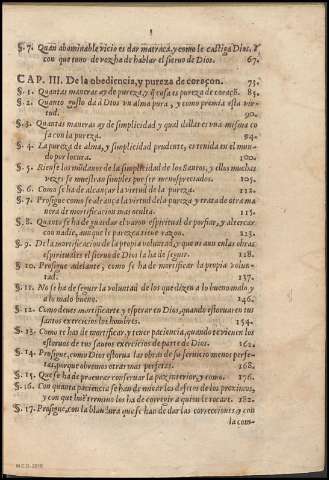 §. 7. Quan abominable vicio es dar matraca, y como le castiga Dios. Y
con que tono de voz ha de hablar el sieruo de Dios. 67.
CAP. III. De la obediencia, y pureza de coraçon. 73.
§. 1. Quantas maneras ay de pureza, y q̃ cosa es pureza de coraçõ. 85.
§. 2. Quanto gusto dà à Dios vn alma pura, y como premia esta vir-
tud. 90.
§. 3. Quantas maneras ay de simplicidad y qual dellas es vna misma co
sa con la pureza. 94.
§. 4. La pureza de alma, y simplicidad prudente, es tenida en el mun-
do por locura. 100.
§. 5. Riense los mũdanos de la simplicidad de los Santos, y ellos muchas
vezes se muestran simples por ser menospreciados. 105.
§. 6. Como se ha de alcançar la virtud de la pureza. 112.
§. 7. Prosigue como se alcança la virtud de la pureza y trata de otra ma
nera de mortificacion mas oculta. 115.
§. 8. Quanto se ha de guardar el varon espiritual de porfiar, y altercar
con nadie, aunque le parezca tiene razon. 123.
§. 9. De la mortificacion de la propia voluntad, y que ni aun en las obras
espirituales el sieruo de Dios la ha de seguir. 128.
§. 10. Prosigue adelante, como se ha de mortificar la propia volun-
tad. 137.
§. 11. No se ha de seguir la voluntad de los que dizen a lo bueno malo, y
a lo malo bueno. 146.
§. 12. Como deues mortificarte y esperar en Dios, quando estoruan tus
santos exercicios los hombres. 154.
§. 13. Como te has de mortificar, y tener paciencia, quando te vienen los
estoruos de tus santos exercicios de parte de Dios. 162.
§. 14. Prosigue, como Dios estorua las obras de su seruicio menos perfe-
tas, porque obremos otras mas perfetas. 168.
§. 15. Que se ha de procurar conseruar la paz interior, y como. 176.
§. 16. Con quanta paciencia se han de mirar los defetos de los proximos,
y con que buẽ termino los ha de corregir a quien le tocare. 182.
§. 17. Prosigue, con la blandura que se han de dar las correcciones, y con
la com-